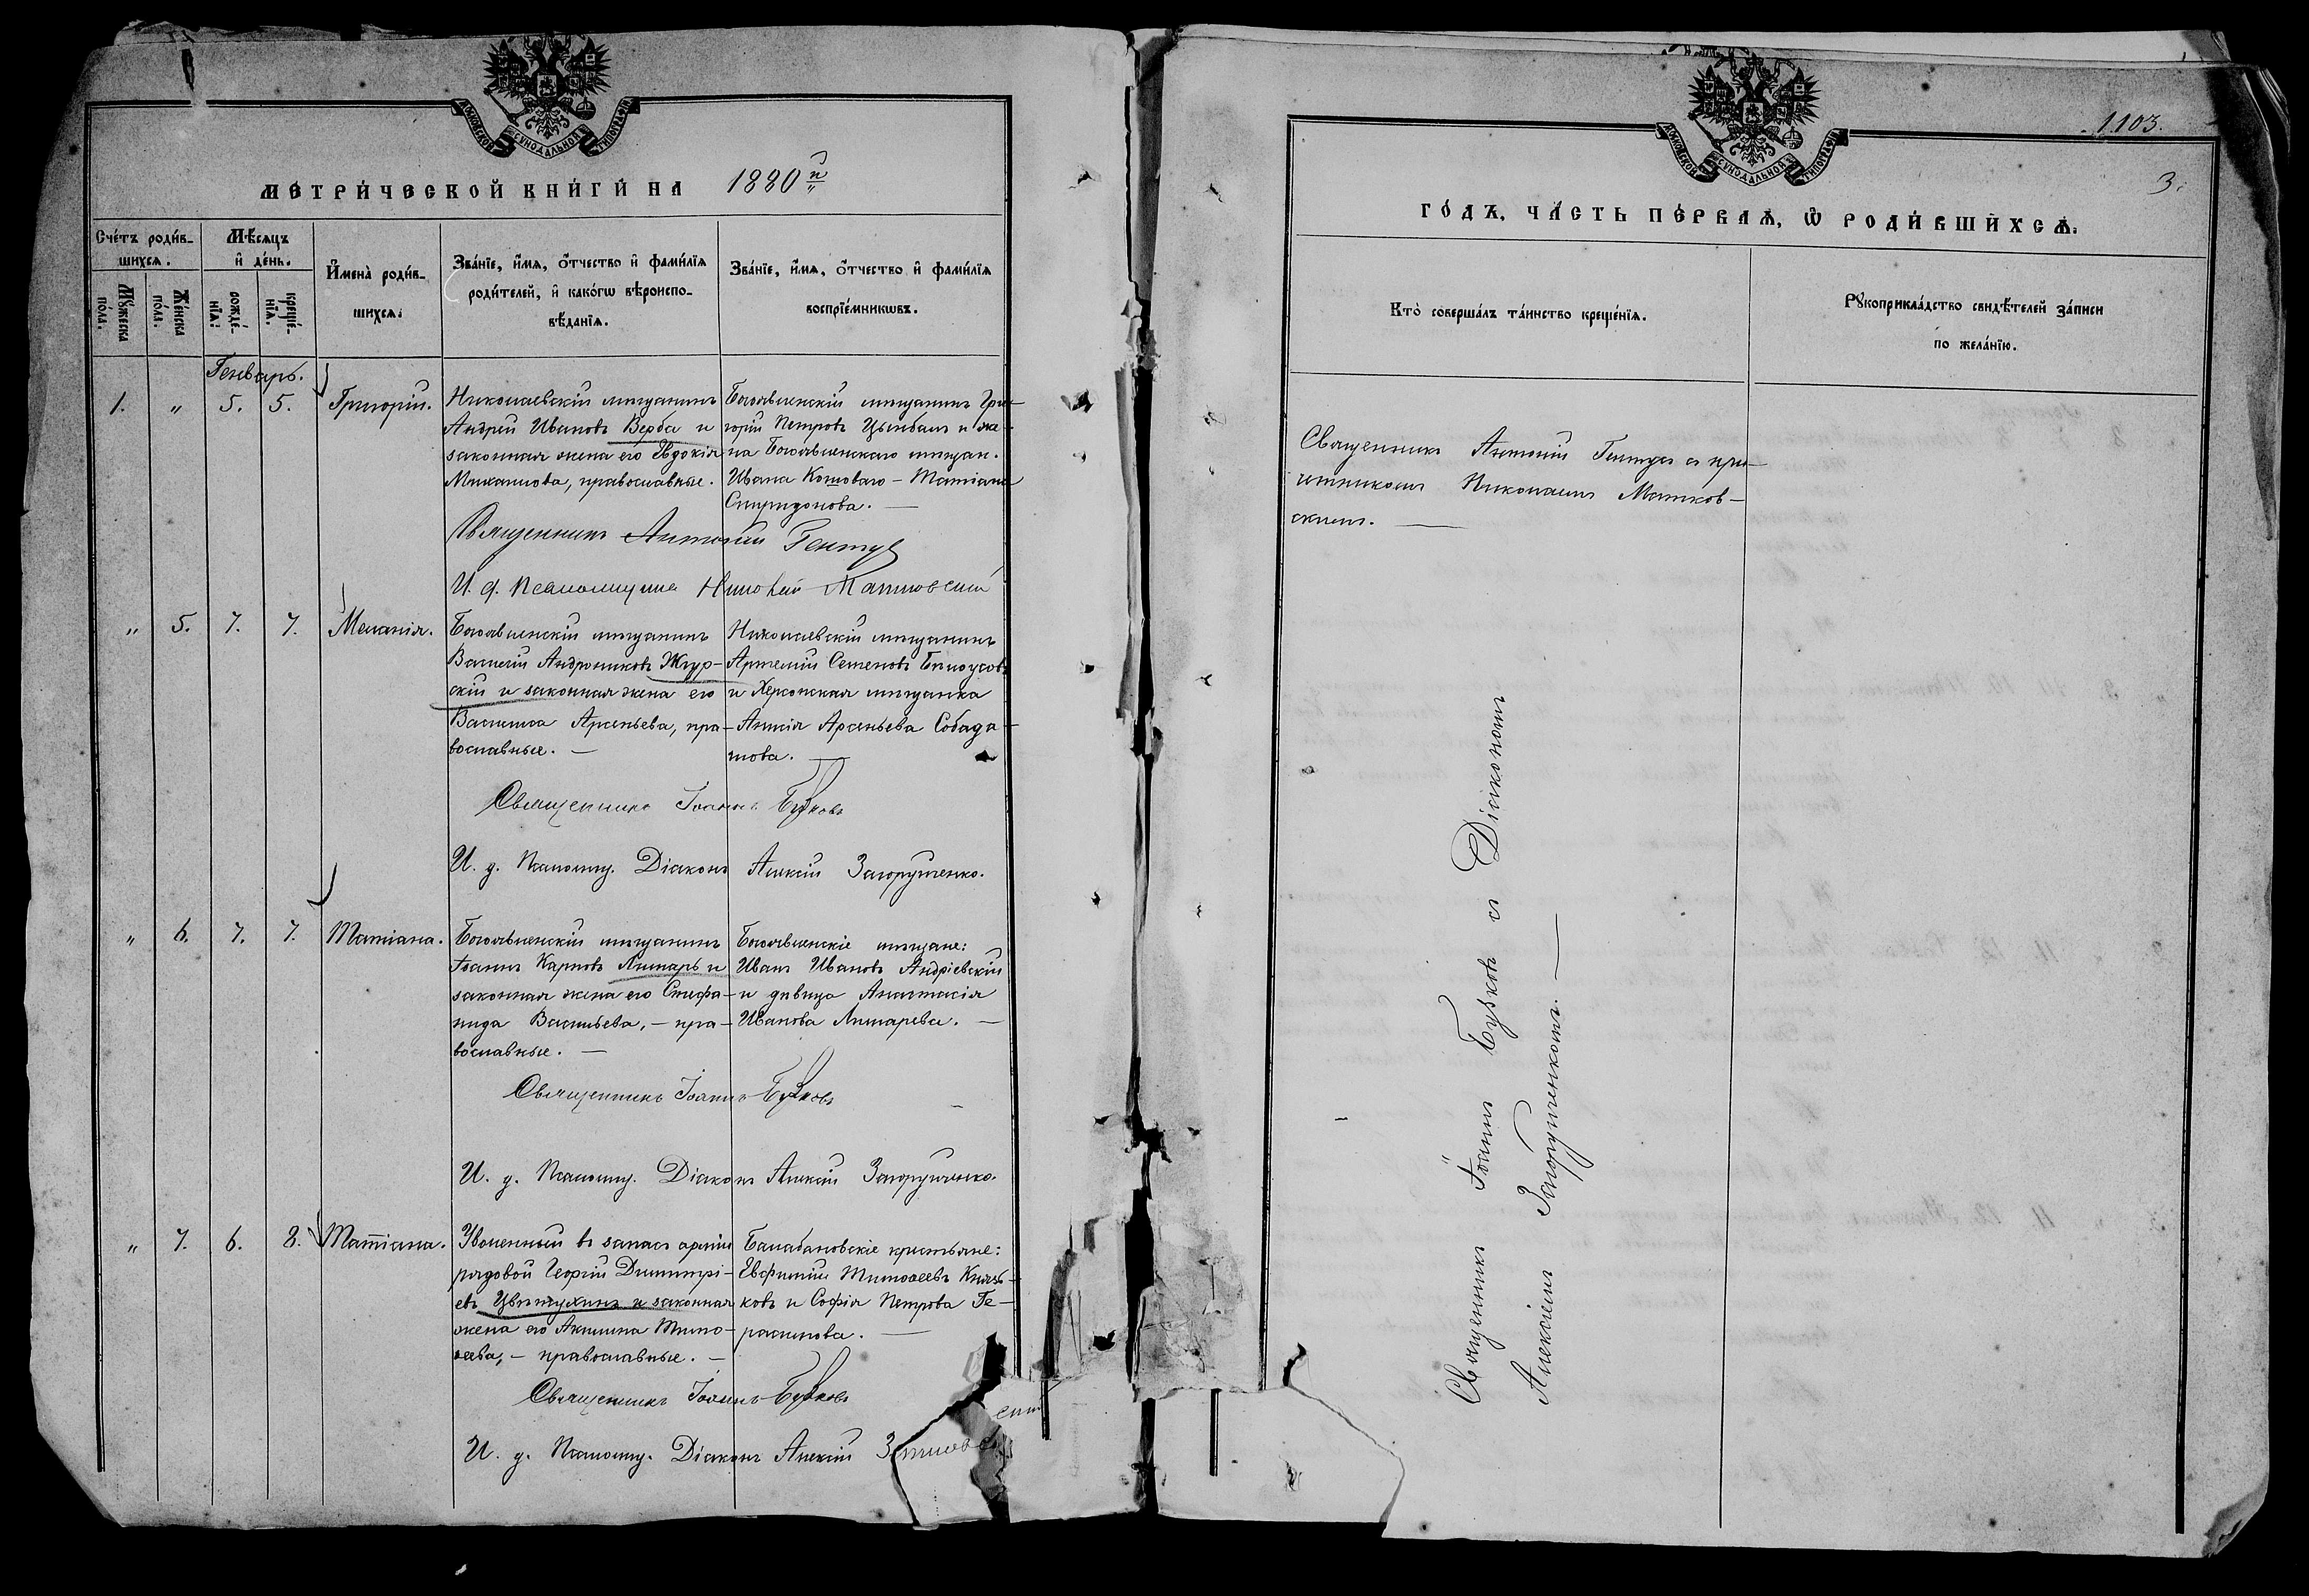 МОСКОВСКОЙ СѴНОДАЛЬНОЙ ТИПОГРАФІИ
МЕТРИ́ЧЕСКОЙ КНИ́ГИ НА 1880й
Сче́тъ роди́в-
шихсѧ.
Мѣ́сѧцъ
и҆ де́нь.
И҆мена̀ роди́в-
шихсѧ.
Зва́нїе, и҆́мѧ, ѻ҆́тчество и҆ фами́лїѧ
роди́телей, и҆ како́гѡ вѣроиспо-
вѣ́данїѧ.
Зва́нїе, и҆́мѧ, ѻ҆́тчество и҆ фами́лїѧ
воспрїе́мникѡвъ.
Мꙋ́жеска
по́ла.
Же́нска
по́ла.
рожде́-
нїѧ.
креще́-
нїѧ.
Генварь.
1. " 5. 5. Григорій.
Николаевскій мѣщанинъ
Андрей Ивановъ Верба и
законная жена его Евдокія
Михаилова, православные.
Богоявленскій мѣщанинъ Гри-
горій Петровъ Цымбалъ и же-
на Богоявленскаго мѣщан.
Ивана Котоваго – Татіана
Спиридонова. —
Священникъ Антоній Гентуе
И. д. Псаломщика Николай Матковскій
" 5. 7. 7. Меланія.
Богоявленскій мѣщанинъ
Василій Андрониковъ Жур-
скій и законная жена его
Василиса Арсеньева, пра-
вославные. —
Николаевскій мѣщанинъ
Артемій Семеновъ Бѣлоусовъ
и Херсонская мѣщанка
Анисія Арсеньева Собада-
това. —
Священникъ Іоаннъ Бубковъ
И. д. Псаломщ. Діаконъ Алексій Загорученко.
" 6. 7. 7. Татіана.
Богоявленскій мѣщанинъ
Іоаннъ Карповъ Лимарь и
законная жена его Стефа-
нида Васильева, – пра-
вославные. —
Богоявленскіе мѣщане:
Иванъ Ивановъ Андріевскій
и дѣвица Анастасія
Иванова Лимарева. —
Священникъ Іоаннъ Бубковъ
И. д. Псаломщ. Діаконъ Алексій Загорученко.
" 7. 6. 8. Татіана.
Уволенный въ запасъ арміи
рядовой Георгій Димитрі-
евъ Цвѣтухинъ и законная
жена его Акилина Тимо-
ѳеева, – православные. –
Балабановскіе крестьяне:
Евфимій Тимоѳеевъ Князь-
ковъ и Софія Петрова Ге-
расимова. —
Священникъ Іоаннъ Бубковъ
И. д. Псаломщ. Діаконъ Алексій
МОСКОВСКОЙ СѴНОДАЛЬНОЙ ТИПОГРАФІИ
1103.
3.
ГО́ДЪ, ЧА́СТЬ ПЕ́РВАѦ, Ѡ҆ РОДИ́ВШИХСѦ.
Кто̀ соверша́лъ та́инство креще́нїѧ.
Рꙋкоприкла́дство свидѣ́телей за́писи
по жела́нїю.
Священникъ Антоній Гентуе съ при-
четникомъ Николаемъ Матков-
скимъ. —
Священникъ Іоаннъ Бубковъ съ Діакономъ
Алексіемъ Загорученкомъ. —